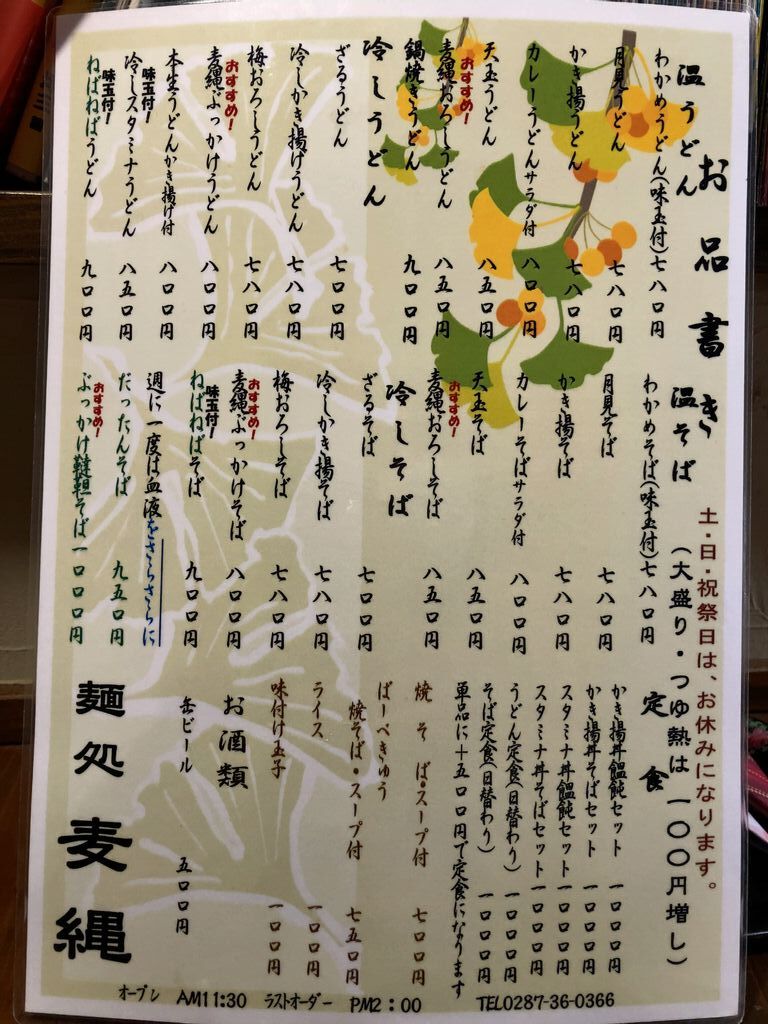 お品書き
土・日・祝祭日は、お休みになります。
(大盛り・つゆ熱は一〇〇円増し)
温うどん
わかめうどん(味玉付)七八〇円
月見うどん 七八〇円
かき揚うどん 七八〇円
カレーうどんサラダ付 八〇〇円
天玉うどん 八五〇円
おすすめ!
麦縄おろしうどん 八五〇円
鍋焼きうどん 九〇〇円
冷しうどん
ざるうどん 七〇〇円
冷しかき揚げうどん 七八〇円
梅おろしうどん 七八〇円
おすすめ!
麦縄ぶっかけうどん 八〇〇円
本生うどんかき揚げ付 八〇〇円
味玉付!
冷しスタミナうどん 八五〇円
味玉付!
ねばねばうどん 九〇〇円
温そば
わかめそば(味玉付)七八〇円
月見そば 七八〇円
かき揚そば 七八〇円
カレーそばサラダ付 八〇〇円
天玉そば 八五〇円
おすすめ!
麦縄おろしそば 八五〇円
冷しそば
ざるそば 七〇〇円
冷しかき揚そば 七八〇円
梅おろしそば 七八〇円
おすすめ!
麦縄ぶっかけそば 八〇〇円
味玉付!
ねばねばそば 九〇〇円
週に一度は血液をさらさらに
だったんそば 九五〇円
おすすめ!
ぶっかけ韃靼そば 一〇〇〇円
定食
かき揚丼饂飩セット 一〇〇〇円
かき揚丼そばセット 一〇〇〇円
スタミナ丼饂飩セット 一〇〇〇円
スタミナ丼そばセット 一〇〇〇円
うどん定食(日替わり) 一〇〇〇円
そば定食(日替わり) 一〇〇〇円
単品に+五〇〇円で定食になります
焼そば・スープ付 七〇〇円
ばーべきゅう
焼そば・スープ付 七五〇円
ライス 一〇〇円
味付け玉子 一〇〇円
お酒類
缶ビール 五〇〇円
麺処 麦縄
オープン AM11:30 ラストオーダー PM2:00 TEL0287-36-0366